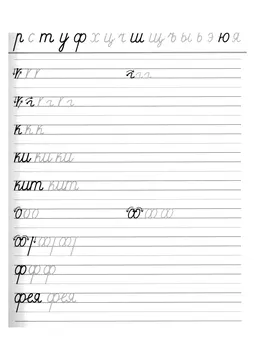 р с т у ф х ц ч ш щ ъ ы ь э ю я
к к к
ки ки ки
кит кит
ф ф ф
фея фея